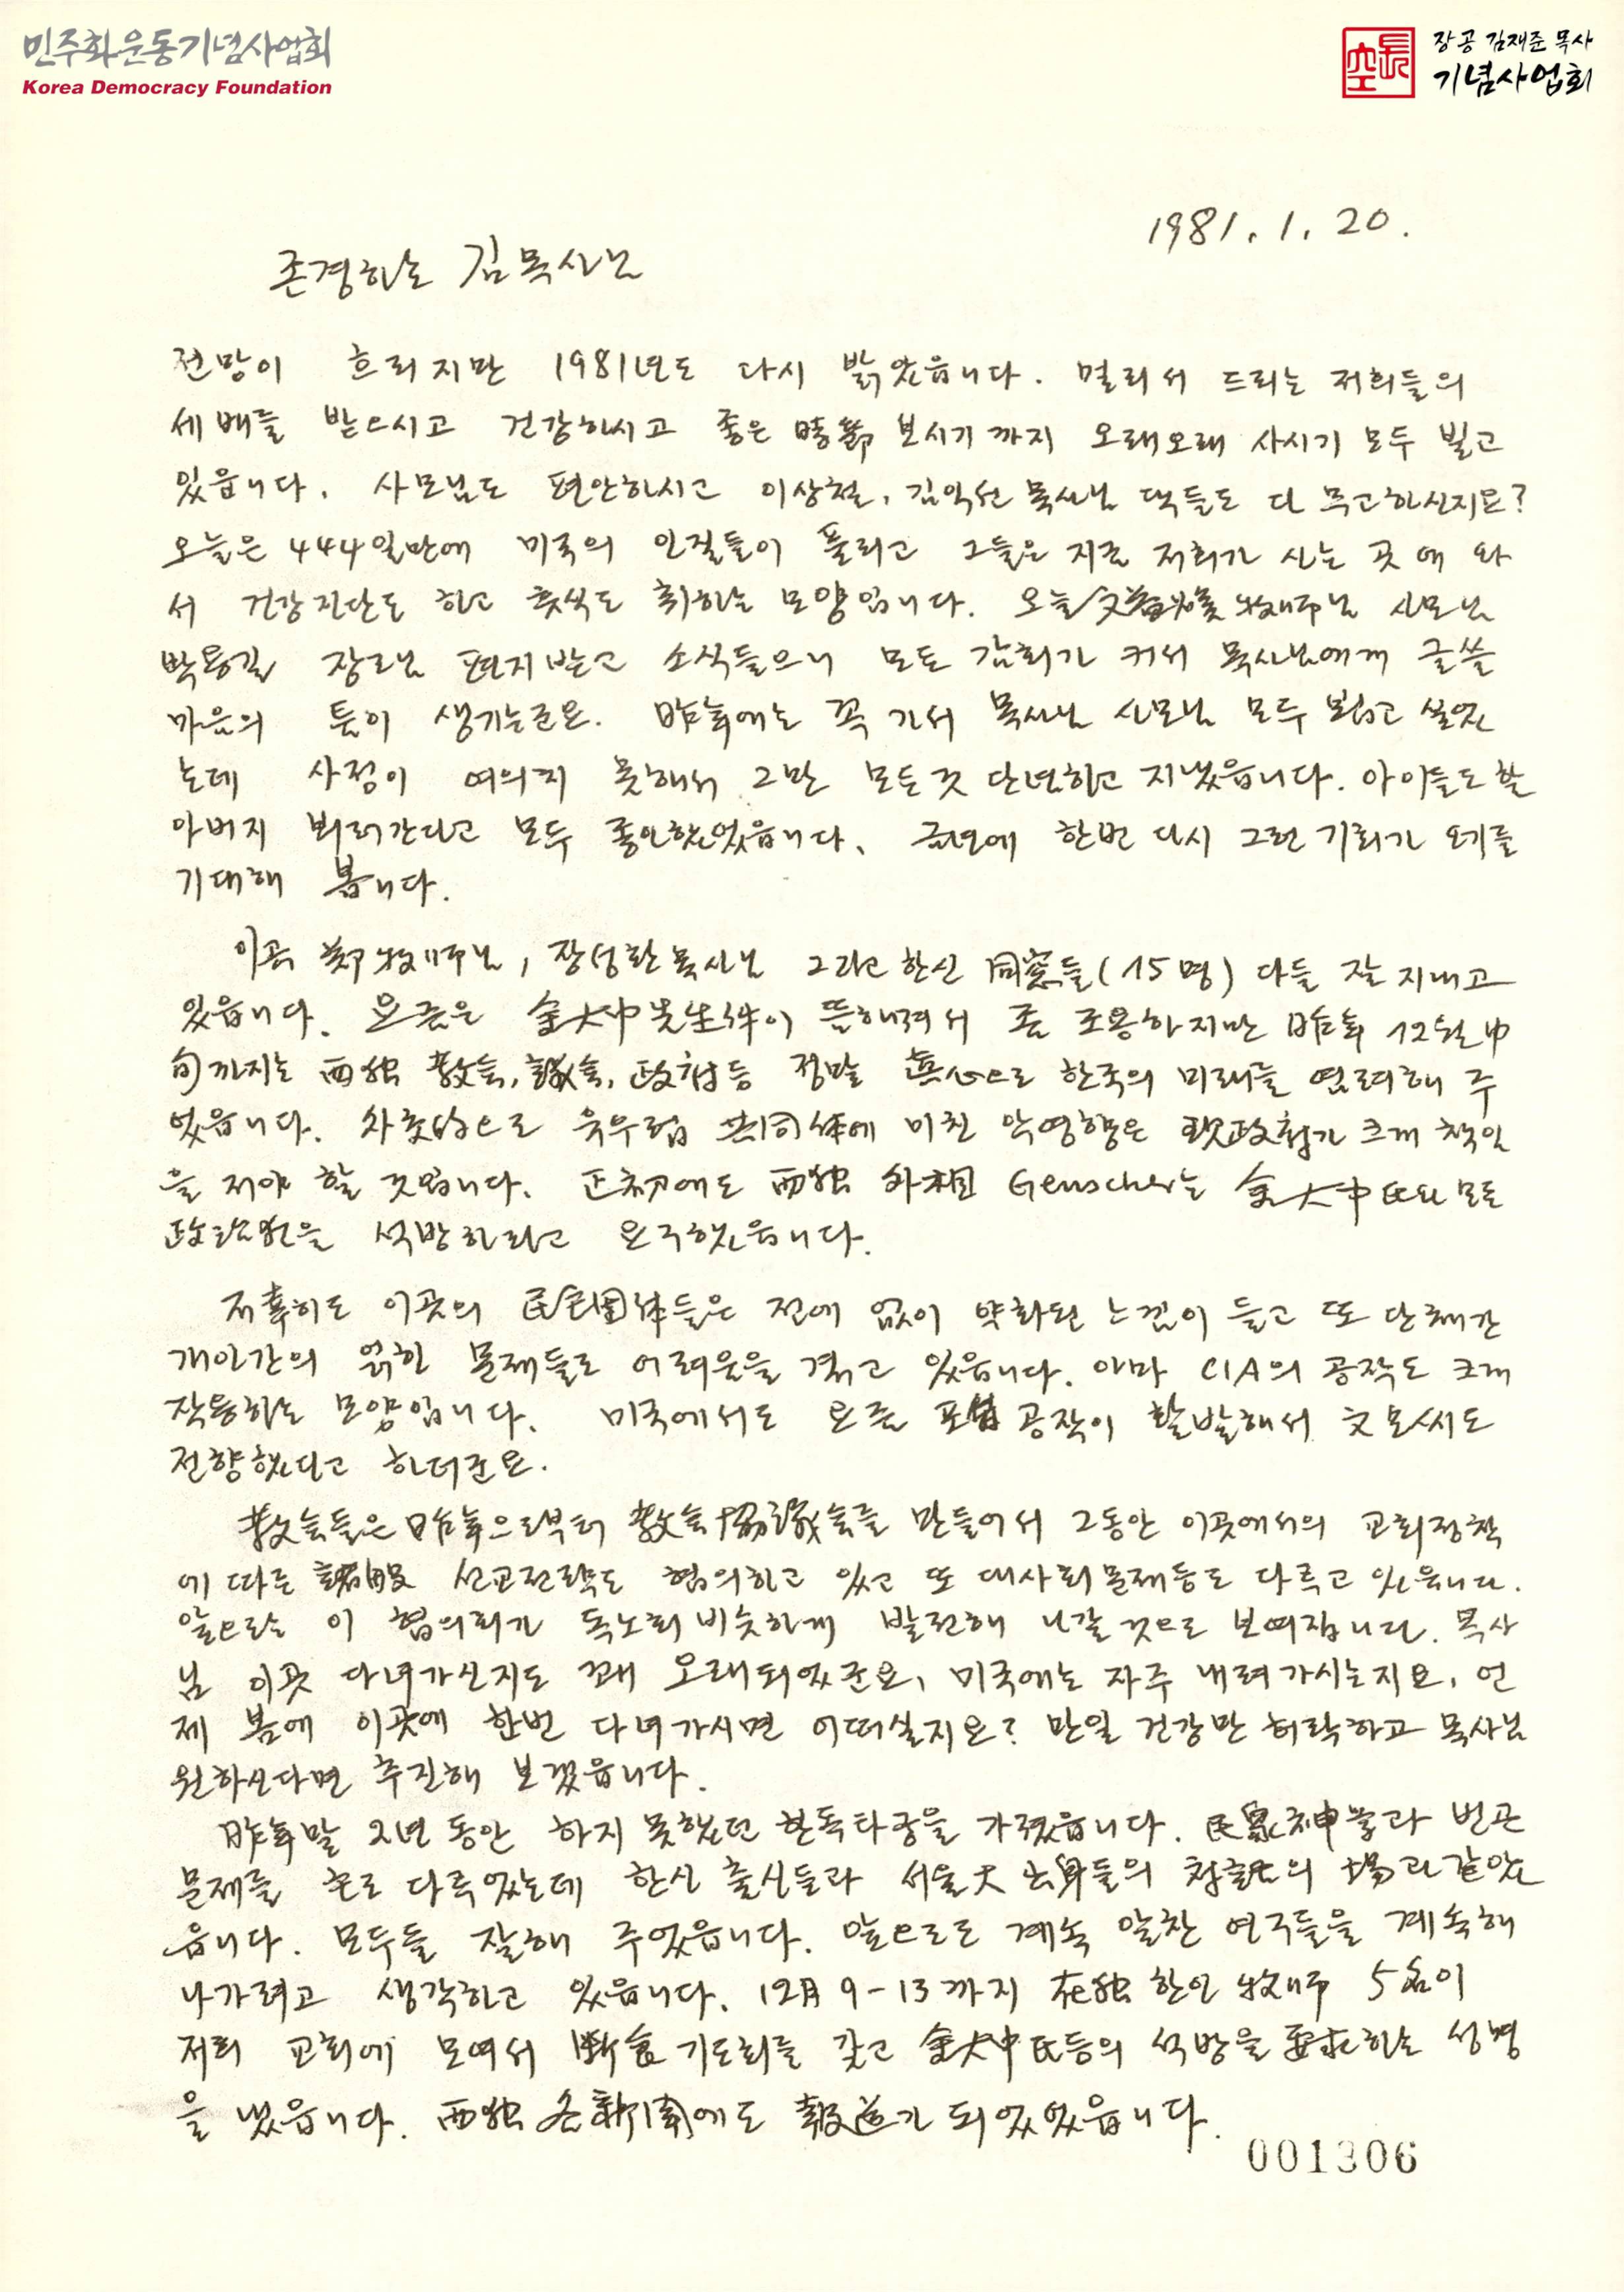 민주화운동기념사업회
Korea Democracy Foundation
長空
장공 김재준 목사
기념사업회
1981. 1. 20.
존경하는 김목사님
전망이 흐리지만 1981년도 다시 밝았읍니다. 멀리서 드리는 저희들의
세배를 받으시고 건강하시고 좋은 時節 보시기까지 오래오래 사시기 모두 빌고
있읍니다. 사모님도 편안하시고 이상철, 김익선 목사님 댁들도 다 무고하신지요?
오늘은 444일만에 미국의 인질들이 풀리고 그들은 지금 저희가 사는 곳에 와
서 건강진단도 하고 휴식도 취하는 모양입니다. 오늘 文益煥 牧師님 사모님
박용길 장로님 편지받고 소식들으니 모든 감회가 커서 목사님에게 글쓸
마음의 틈이 생기는군요. 昨年에는 꼭 가서 목사님 사모님 모두 뵙고 싶었
는데 사정이 여의치 못해서 그만 모든것 단념하고 지냈읍니다. 아이들도 할
아버지 뵈러간다고 모두 좋아했었읍니다. 금년에 한번 다시 그런 기회가 오기를
기대해 봅니다.
이곳 鄭牧師님, 장성환목사님 그리고 한신 同窓들(15명) 다들 잘 지내고
있읍니다. 요즘은 金大中先生件이 뜸해져서 좀 조용하지만 昨年 12월中
旬까지는 西独 教会, 議会, 政府등 정말 眞心으로 한국의 미래를 염려해 주
었읍니다. 외교的으로 욱우럽 共同体에 미친 악영향은 現政权가 크게 책임
을 저야 할 것입니다. 正初에도 西独 外相 Genscher는 金大中氏와 모든
政治犯을 석방하라고 요구했읍니다.
저希히도 이곳의 民主団体들은 전에 없이 약화된 느낌이 들고 또 단체간
개인간의 얽힌 문제들로 어려움을 겪고 있읍니다. 아마 CIA의 공작도 크게
작용하는 모양입니다. 미국에서도 요즘 공작이 활발해서 文모씨도
전향했다고 하더군요.
教会들은 昨年으로부터 教会協議会를 만들어서 그동안 이곳에서의 교회정책
에 따른 諸般 선교전략도 협의하고 있고 또 대사회문제등도 다루고 있읍니다.
앞으로는 이 협의회가 독노회 비슷하게 발전해 나갈 것으로 보여집니다. 목사
님 이곳 다녀가신지도 꽤 오래되었군요, 미국에는 자주 내려가시는지요, 언
제 봄에 이곳에 한번 다녀가시면 어떠실지요? 만일 건강만 허락하고 목사님
원하신다면 추진해 보겠읍니다.
昨年말 2년 동안 하지 못했던 한독타궁을 가졌읍니다. 民衆神学과 번관
문제를 주로 다루었는데 한신 출신들과 서울大 出身들의 対話의 場과 같았
읍니다. 모두들 잘해 주었읍니다. 앞으로도 계속 알찬 연구들을 계속해
나가려고 생각하고 있읍니다. 12月 9-13까지 在独 한인 牧師 5名이
저희 교회에 모여서 断食기도회를 갖고 金大中氏등의 석방을 要求하는 성명
을 냈읍니다. 西独 各新聞에도 報道가 되었었읍니다.
001306